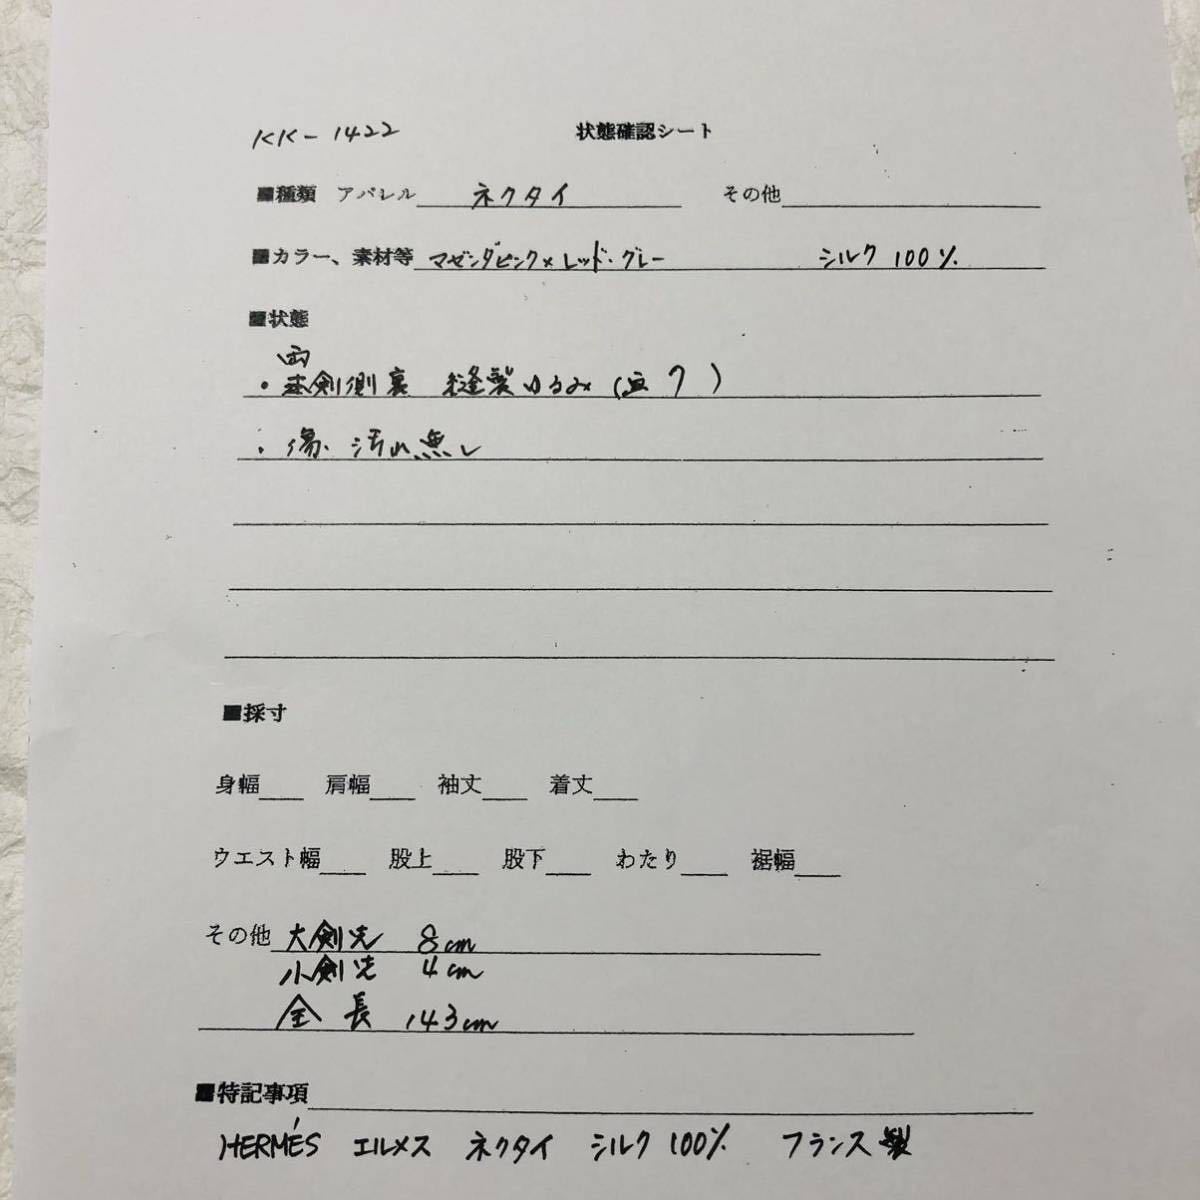 KK-1422 状態確認シート
■種類 アパレル ネクタイ その他
■カラー、素材等 マゼンダピンク×レッド・グレー シルク 100%
■状態
両
・剣側裏 縫製ゆるみ( ク )
・傷、汚れ無し
■採寸
身幅 肩幅 袖丈 着丈
ウエスト幅 股上 股下 わたり 裾幅
その他 大剣先 8cm
小剣先 4cm
全長 143cm
■特記事項
HERMÉS エルメス ネクタイ シルク 100% フランス製